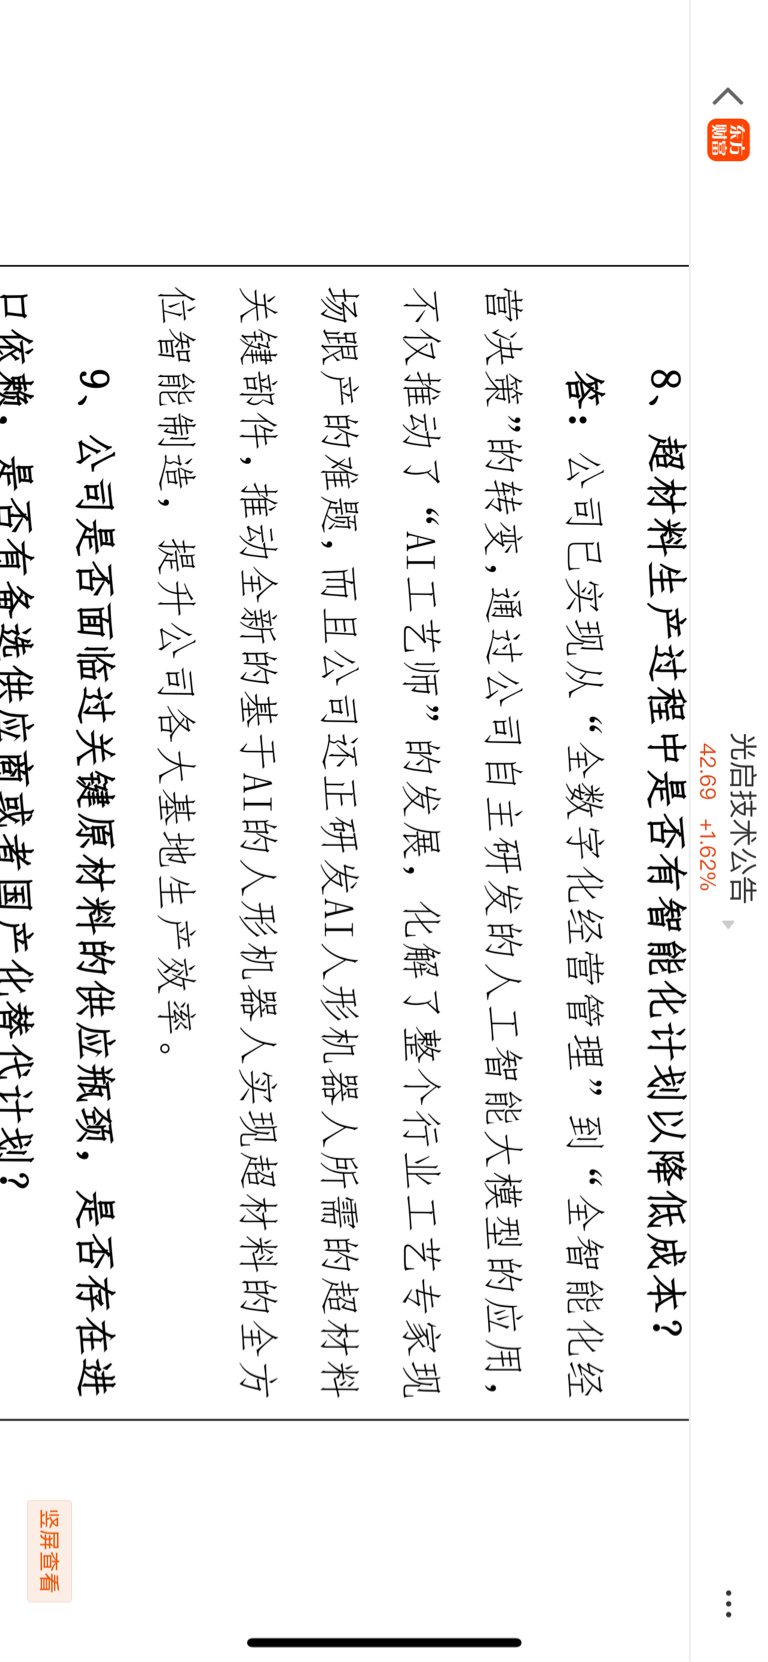 东方
财富
光启技术公告
42.69 +1.62%
8、超材料生产过程中是否有智能化计划以降低成本？
答：公司已实现从“全数字化经营管理”到“全智能化经
营决策”的转变，通过公司自主研发的人工智能大模型的应用，
不仅推动了“AI工艺师”的发展，化解了整个行业工艺专家现
场跟产的难题，而且公司还正研发AI人形机器人所需的超材料
关键部件，推动全新的基于AI的人形机器人实现超材料的全方
位智能制造，提升公司各大基地生产效率。
9、公司是否面临过关键原材料的供应瓶颈，是否存在进
口依赖，是否有备选供应商或者国产化替代计划？
竖屏查看